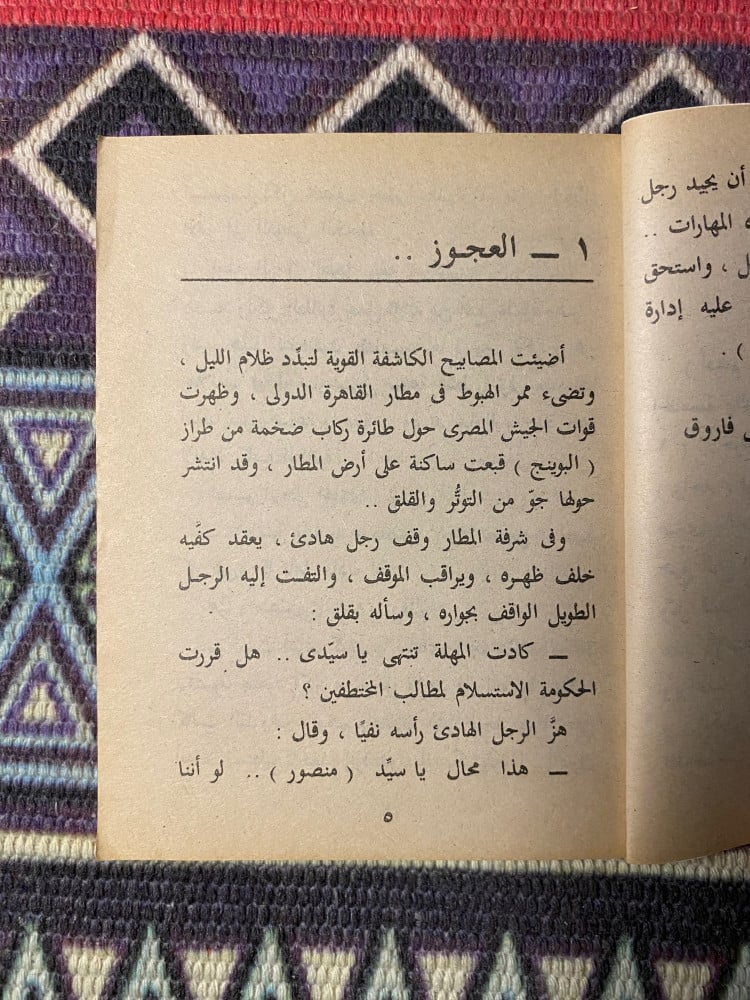 أن يجيد رجل
المهارات ..
ل ، واستحق
عليه إدارة
) .
فاروق
١ — العجوز ..
أضيئت المصابيح الكاشفة القوية لتبدّد ظلام الليل ،
وتضىء ممر الهبوط فى مطار القاهرة الدولى ، وظهرت
قوات الجيش المصرى حول طائرة ركاب ضخمة من طراز
( البوينج ) قبعت ساكنة على أرض المطار ، وقد انتشر
حولها جوّ من التوتُّر والقلق ..
وفى شرفة المطار وقف رجل هادئ ، يعقد كفَّيه
خلف ظهره ، ويراقب الموقف ، والتفت إليه الرجل
الطويل الواقف بجواره ، وسأله بقلق :
— كادت المهلة تنتهى يا سيّدى .. هل قررت
الحكومة الاستسلام لمطالب المختطفين ؟
هزَّ الرجل الهادئ رأسه نفيًا ، وقال :
— هذا محال يا سيِّد ( منصور ) .. لو أننا
٥